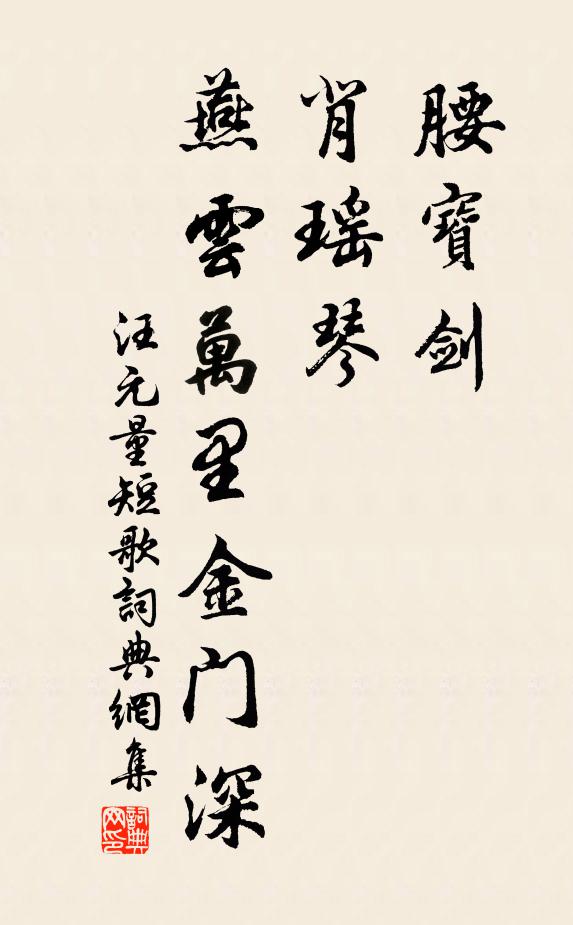 腰寶劍
背瑶琴
燕雲萬里金門深
汪元量短歌詞典網集
詞典网印